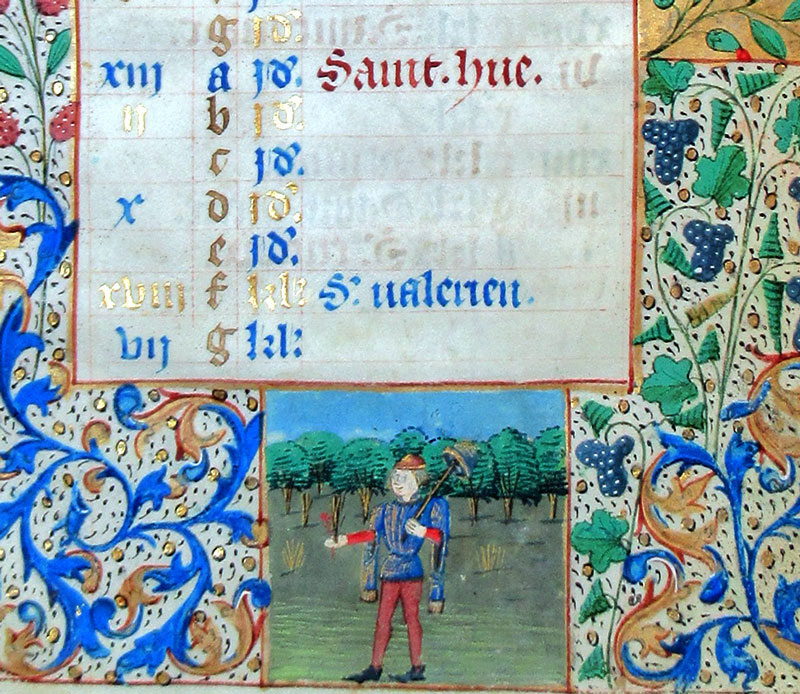 g jd.
xiij a jd. Saint. hue.
ij b jd.
c jd.
x d jd.
e jd.
xviij f kl. S. valerien.
vij g kl.